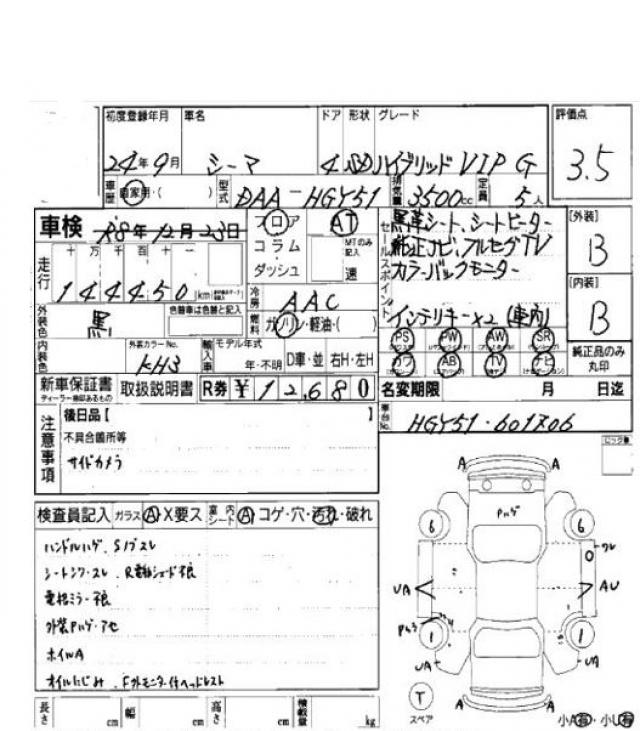 初度登録年月 車名 ドア 形状 グレード 評価点
24年9月 シーマ 4 SD ハイブリッド VIP G 3.5
車歴 自家用・( ) 型式 DAA-HGY51 排気量 3500cc 定員 5人
車検 R8年12月23日 フロア AT
コラム MTのみ記入
ダッシュ 速
セールスポイント
黒革シート、シートヒーター
純正ナビ、フルセグTV
カラーバックモニター
インテリキー×2 (車内)
[外装]
B
[内装]
B
走行 十 万 千 百 十 一
144450 km
冷房 AAC
外装色 黒 色替車は色替と記入
燃料 ガソリン・軽油・( )
内装色 外装カラーNo. KH3
輸入車 モデル年式 年・不明 D車・並 右H・左H
PS PW AW SR
カワ AB TV ナビ
純正品のみ丸印
新車保証書 取扱説明書 R券 ¥12,680
ディーラー捺印あるもの
名変期限 月 日迄
車台No. HGY51-601706
注意事項
後日品【 】
不具合箇所等
サイドカメラ
検査員記入 ガラスA・X要ス 室内シートA コゲ・穴・汚れ・破れ
ハンドルハゲ、Sノブスレ
シートシワ・スレ、R電動シェード不良
電格ミラー不良
外装Pハゲ・アセ
ホイルA
オイルにじみ、Fタトモニタ付ヘッドレスト
A A
Pハゲ
6 6
ワレ
UA AU
1 1
UA UA
T
スペア
A A
長さ cm 幅 cm 高さ cm 積載量 kg
小A有・小U有